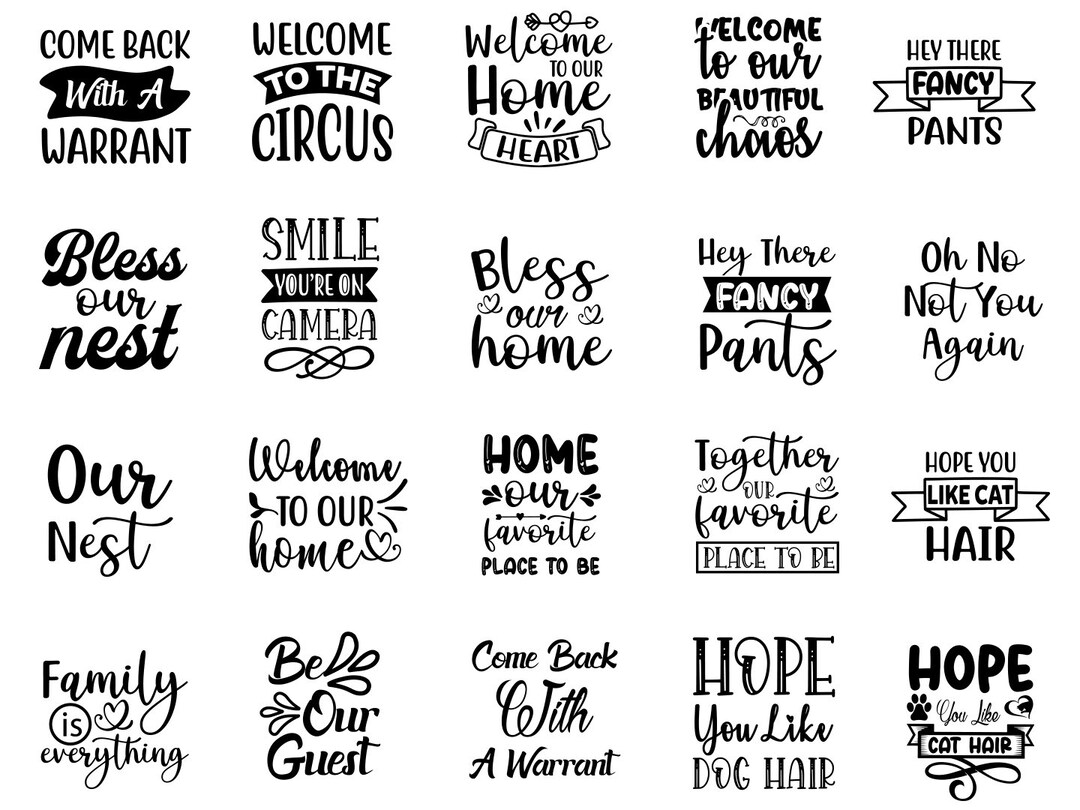 COME BACK
With A
WARRANT
WELCOME
TO THE
CIRCUS
Welcome
TO OUR
Home
HEART
WELCOME
to our
BEAUTIFUL
chaos
HEY THERE
FANCY
PANTS
Bless
our
nest
SMILE
YOU'RE ON
CAMERA
Bless
our
home
Hey There
FANCY
Pants
Oh No
Not You
Again
Our
Nest
Welcome
TO OUR
home
HOME
our
favorite
PLACE TO BE
Together
OUR
favorite
PLACE TO BE
HOPE YOU
LIKE CAT
HAIR
Family
is
everything
Be
Our
Guest
Come Back
With
A Warrant
HOPE
You Like
DOG HAIR
HOPE
You Like
CAT HAIR